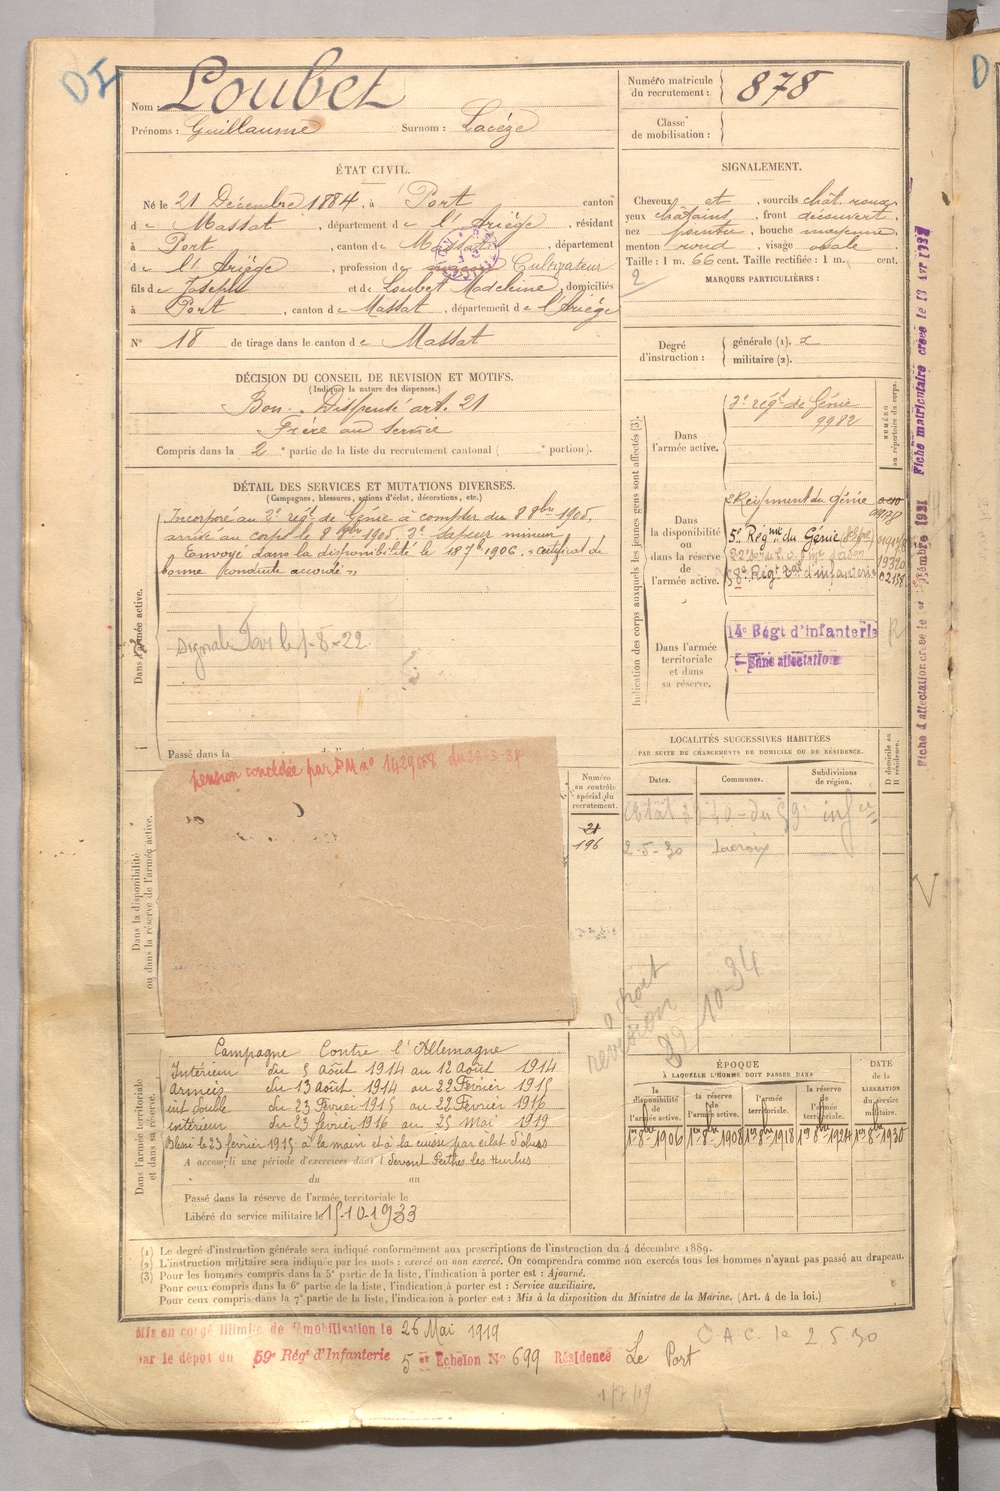 DI
Nom : Loubet
Prénoms : Guillaume Surnom : Lacéze
Numéro matricule du recrutement : 878
Classe de mobilisation :
ÉTAT CIVIL.
Né le 21 Décembre 1884, à Port canton
de Massat, département de l'Ariége, résidant
à Port, canton de Massat, département
de l'Ariége, profession de Cultivateur
fils de Joseph et de Loubet Madeleine, domiciliés
à Port, canton de Massat, département de l'Ariége
N° 18 de tirage dans le canton de Massat
SIGNALEMENT.
Cheveux et, sourcils chât. roux
yeux châtains, front découvert
nez pointu, bouche moyenne
menton rond, visage ovale
Taille : 1 m. 66 cent. Taille rectifiée : 1 m. cent.
2
MARQUES PARTICULIÈRES :
Degré d'instruction : générale (1). 2
militaire (2).
DÉCISION DU CONSEIL DE REVISION ET MOTIFS.
(Indiquer la nature des dispenses.)
Bon. Dispensé art. 21
Frère au service
Compris dans la 2e partie de la liste du recrutement cantonal ( e portion).
DÉTAIL DES SERVICES ET MUTATIONS DIVERSES.
(Campagnes, blessures, actions d'éclat, décorations, etc.)
Dans l'armée active.
Incorporé au 2e régt de Génie à compter du 8 8bre 1905,
arrivé au corps le 8 8bre 1905 2e sapeur mineur
Envoyé dans la disponibilité le 18 7b 1906. Certificat de
bonne conduite accordé
Passé dans la
pension concédée par DM n° du 28-3-
Dans la disponibilité
ou dans la réserve de l'armée active.
Numéro au contrôle spécial du recrutement.
21
196
Indication des corps auxquels les jeunes gens sont affectés (3).
NUMÉRO au répertoire du corps.
Dans l'armée active.
2e régt de Génie
9982
Dans la disponibilité ou dans la réserve de l'armée active.
2e Régiment du Génie
5e Régime du Génie
Dans l'armée territoriale et dans sa réserve.
14e Régt d'infanterie
Sans affectation
R
LOCALITÉS SUCCESSIVES HABITÉES
PAR SUITE DE CHANGEMENTS DE DOMICILE OU DE RÉSIDENCE.
D domicile ou R résidence.
Dates.
Communes.
Subdivisions de région.
2-5-30 Lacroix
à droit
révision
10-34
Dans l'armée territoriale
et dans sa réserve.
Campagne Contre l'Allemagne
Intérieur du 5 août 1914 au 12 Août 1914
Armées du 13 Août 1914 au 22 Février 1915
int double du 23 Février 1915 au 22 Février 1916
intérieur du 23 février 1916 au 25 Mai 1919
Blessé le 23 février 1915 à la main et à la cuisse par éclat d'obus
A accompli une période d'exercices dans l devant Perthes les Hurlus
du au
Passé dans la réserve de l'armée territoriale le
Libéré du service militaire le 15-10-1933
ÉPOQUE
À LAQUELLE L'HOMME DOIT PASSER DANS
la disponibilité de l'armée active.
la réserve de l'armée active.
l'armée territoriale.
la réserve de l'armée territoriale.
DATE de la LIBÉRATION du service militaire.
1er 8bre 1906 1er 8bre 1908 1er 8bre 1918 1er 8bre 1924 1er 8bre 1930
(1) Le degré d'instruction générale sera indiqué conformément aux prescriptions de l'instruction du 4 décembre 1889.
(2) L'instruction militaire sera indiquée par les mots : exercé ou non exercé. On comprendra comme non exercés tous les hommes n'ayant pas passé au drapeau.
(3) Pour les hommes compris dans la 5e partie de la liste, l'indication à porter est : Ajourné.
Pour ceux compris dans la 6e partie de la liste, l'indication à porter est : Service auxiliaire.
Pour ceux compris dans la 7e partie de la liste, l'indication à porter est : Mis à la disposition du Ministre de la Marine. (Art. 4 de la loi.)
Mis en congé illimité de démobilisation le 26 Mai 1919
par le dépôt du 59e Régt d'Infanterie 5 er Echelon N° 699 Résidence Le Port
C.A.C. le 2 5 30
Fiche d'affectation créée le
Fiche matriculaire créée le 13 Avr